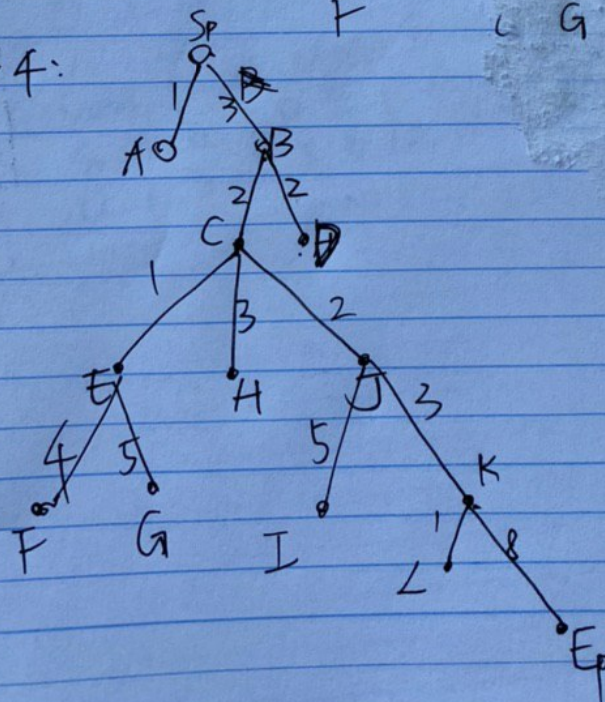 Sp F C G
4:
1 3
A B
2 2
C D
1 3 2
E H J
4 5 5 3
K
F G I 1 8
L
Ep